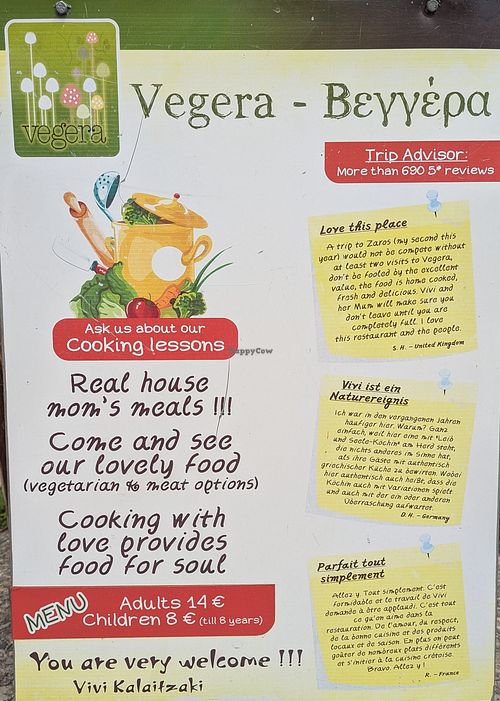 vegera
Vegera - Βεγγέρα
Trip Advisor:
More than 690 5* reviews
Ask us about our
Cooking lessons
Real house
mom's meals !!!
Come and see
our lovely food
(vegetarian % meat options)
Cooking with
love provides
food for soul
MENU
Adults 14 €
Children 8 € (till 8 years)
You are very welcome !!!
Vivi Kalaitzaki
Love this place
A trip to Zaros (my second this
year) would not be compete without
at least two visits to Vegera,
don't be fooled by the excellent
value, the food is home cooked,
fresh and delicious. Vivi and
her Mum will make sure you
don't leave until you are
completely full. I love
this restaurant and the people.
S.H. - United Kingdom
Vivi ist ein
Naturereignis
Ich war in den vergangenen Jahren
häufiger hier. Warum? Ganz
einfach, weil hier eine mit "Leib
und Seele-Köchin" am Herd steht,
die nichts anderes im Sinne hat,
als ihre Gäste mit authentisch
griechischer Küche zu bewirten. Wobei
hier authentisch auch heißt, dass die
Köchin auch mit Variationen spielt
und auch mit der ein oder anderen
Überraschung aufwartet.
D.H. - Germany
Parfait tout
simplement
Allez y. Tout simplement. C'est
formidable et le travail de Vivi
demande à être applaudi. C'est tout
ce qu'on aime dans la
restauration. De l'amour, du respect,
de la bonne cuisine et des produits
locaux et de saison. En plus on peut
goûter de nombreux plats différents
et s'initier à la cuisine crétoise.
Bravo. Allez y !
R. - France
HappyCow